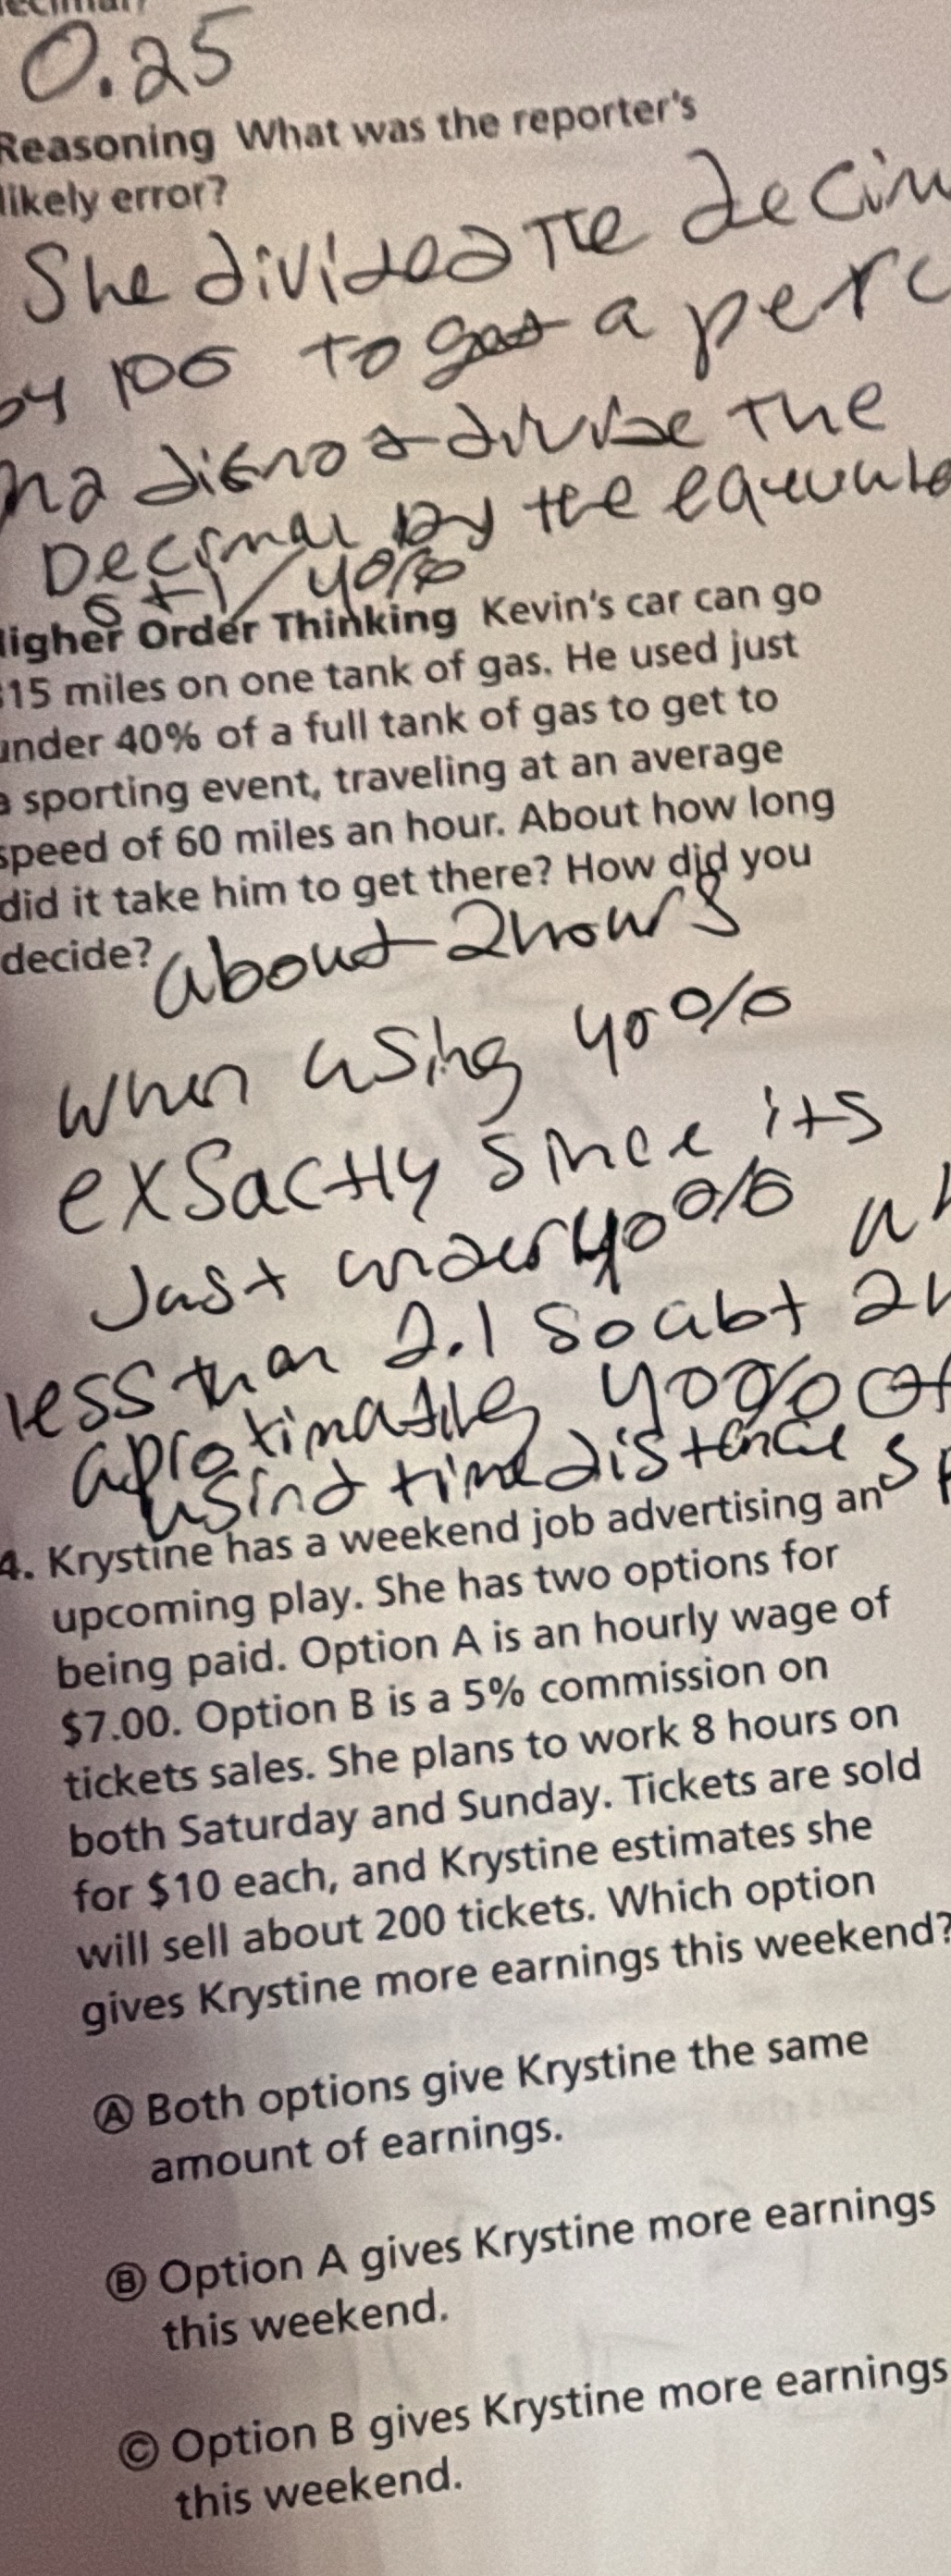 0.25
Reasoning What was the reporter's
likely error?
She divided the decim
by 100 to get a perc
did not divide the
Decimal by the
of 1/40%
Higher Order Thinking Kevin's car can go
315 miles on one tank of gas. He used just
under 40% of a full tank of gas to get to
a sporting event, traveling at an average
speed of 60 miles an hour. About how long
did it take him to get there? How did you
decide?
about 2 hours
when using 40%
exsactly since its
Just under 40%
less than 2.1 so abt 2h
40% of
time distance
4. Krystine has a weekend job advertising an
upcoming play. She has two options for
being paid. Option A is an hourly wage of
$7.00. Option B is a 5% commission on
tickets sales. She plans to work 8 hours on
both Saturday and Sunday. Tickets are sold
for $10 each, and Krystine estimates she
will sell about 200 tickets. Which option
gives Krystine more earnings this weekend?
Ⓐ Both options give Krystine the same
amount of earnings.
Ⓑ Option A gives Krystine more earnings
this weekend.
Ⓒ Option B gives Krystine more earnings
this weekend.